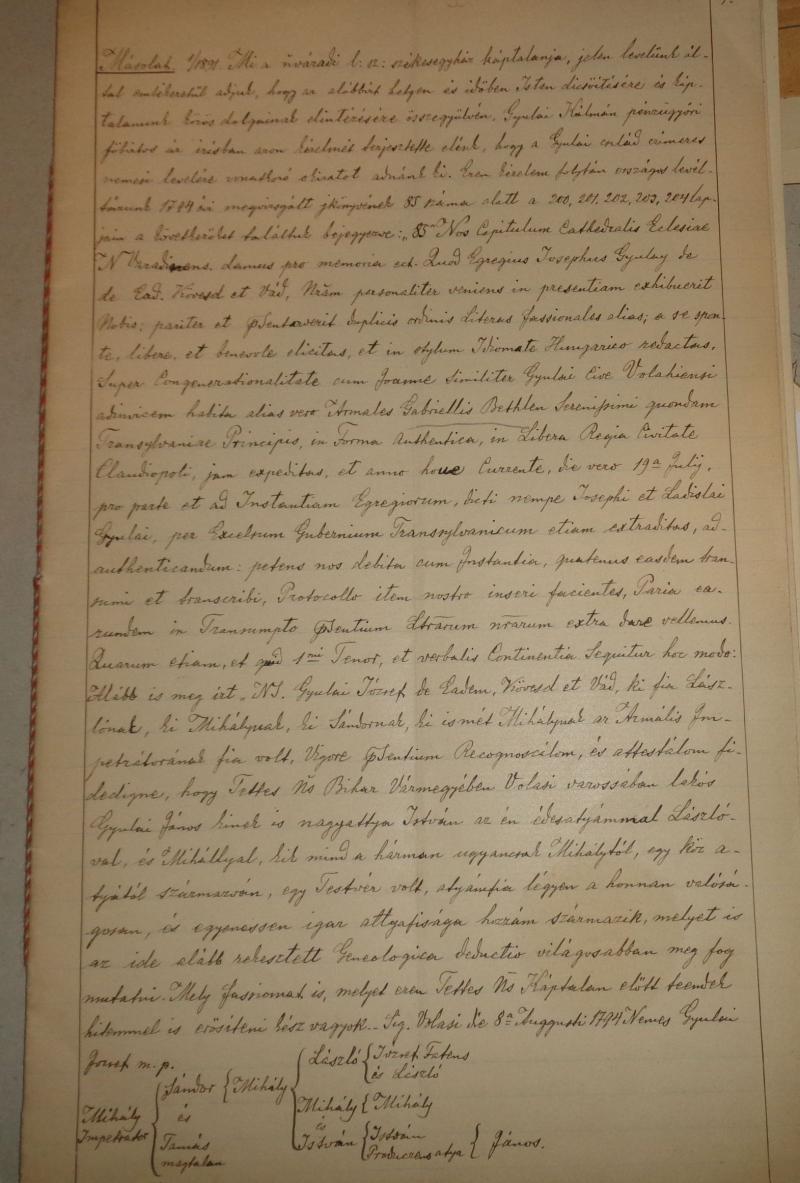 Másolat. 1/1891. Mi a nváradi l: sz: székesegyház káptalanja, jelen levelünk ál-
tal emlékezetül adjuk, hogy az alábbirt helyen és időben Isten dicsőitésére és káp-
talanunk közös dolgainak elintézésére összegyülvén, Gyulai Kálmán pénzügyőri
főbiztos úr irásban azon kérelmét terjesztette elénk, hogy a Gyulai család czimeres
nemesi levelére vonatkozó okiratot adnánk ki. Ezen kérelem folytán országos levél-
tárunk 1794 évi megvizsgált jkönyvének 85 száma alatt a 200, 201, 202, 203, 204 lap-
jain a következőket találtuk bejegyezve: „85 Nos Capitulum Cathedralis Eclesiae
N Varadinens. damus pro memoria ect. Quod Egregius Josephus Gyulay de
de Ead. Kövesd et Vád, Nrãm personaliter veniens in presentiam exhibuerit
Nobis; pariter et pSentaverit duplicis ordinis Literas fassionales alias; a se spon-
te, libere, et benevole elicitas, et in stylum Idiomate Hungarico redactas,
Super Congenerationalitate cum Joanne similiter Gyulai Cive Volahiensi
adinvicem habita alias vero Armales Gabriellis Bethlen Serenissimi quondam
Transylvaniae Principis, in Forma Authentica, in Libera Regia Civitate
Claudiopoti, jam expeditas, et anno hocce Currente, die vero 19a Julij,
pro parte et ad Instantiam Egregiorum, dicti nempe Josephi et Ladislai
Gyulai, per Excelsum Gubernium Transsylvanicum etiam extraditas, ad-
authenticandum: petens nos debita cum Instantia, quatenus easdem tran-
sumi et transcribi, Protocollo item nostro inseri facientes, Paria ea-
rundem in Transumpto pSentium Ltrãrum nrãrum extra dare vellemus.
Quarum etiam, et quid 1mi Tenor, et verbalis Continentia Sequitur hoc modo:
Alább is meg irt „NS. Gyulai József de Eadem, Kövesd et Vád, ki fia Lász-
lónak, ki Mihálynak, ki Sándornak, ki ismét Mihálynak az Armális Im-
petrátorának fia volt, Vigore pSentium Recognoscálom, és attestálom fi-
dedigne, hogy Tettes Ns Bihar Vármegyében Volasi varossában lakós
Gyulai János kinek is nagyattya István az én édesatyámmal László-
val, és Mihállyal, kik mind a hárman ugyancsak Mihálytól, egy köz a-
tyától származván, egy Testvér volt, atyámfia légyen a honnan valósá-
gosan, és egyenessen igaz attyafisága hozzám származik, melyet is
az ide alább rekesztett Genealogica deductio világosabban meg fog
mutatni. Mely fassiomat is, melyet ezen Tettes Ns Káptalan előtt teendek
hitemmel is erősiteni kész vagyok.- Sig. Volasi die 8a Auggusti 1794 Nemes Gyulai
József m. p.
Mihály Impetrator { Sándor és Tamás magtalan { Mihály { László { József Fatens és László
Mihály { Mihály
és István { István Producens atya { János.